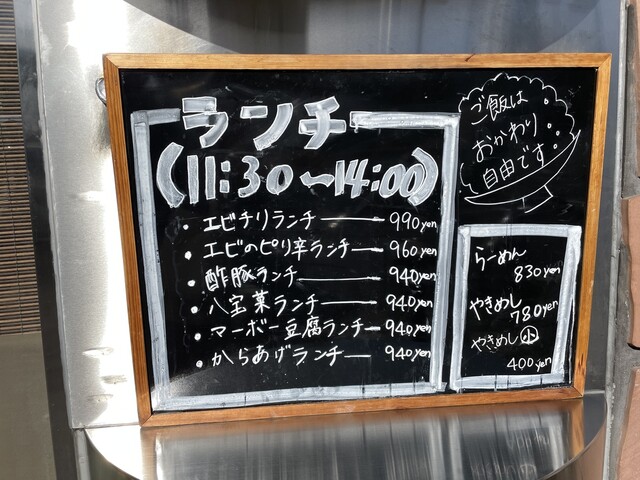 ランチ
(11:30～14:00)
・エビチリランチ——990yen
・エビのピリ辛ランチ—960yen
・酢豚ランチ——940yen
・八宝菜ランチ——940yen
・マーボー豆腐ランチ—940yen
・からあげランチ——940yen
ご飯は
おかわり
自由です
らーめん
830yen
やきめし
780yen
やきめし小
400yen